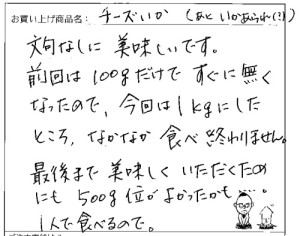 お買い上げ商品名： チーズいか （あと いかあられ（？））
文句なしに 美味しいです。
前回は 100gだけで すぐに無く
なったので、今回は 1kgにした
ところ、なかなか 食べ終わりません。
最後まで 美味しく いただくため
にも 500g位が よかったかも……。
1人で食べるので。